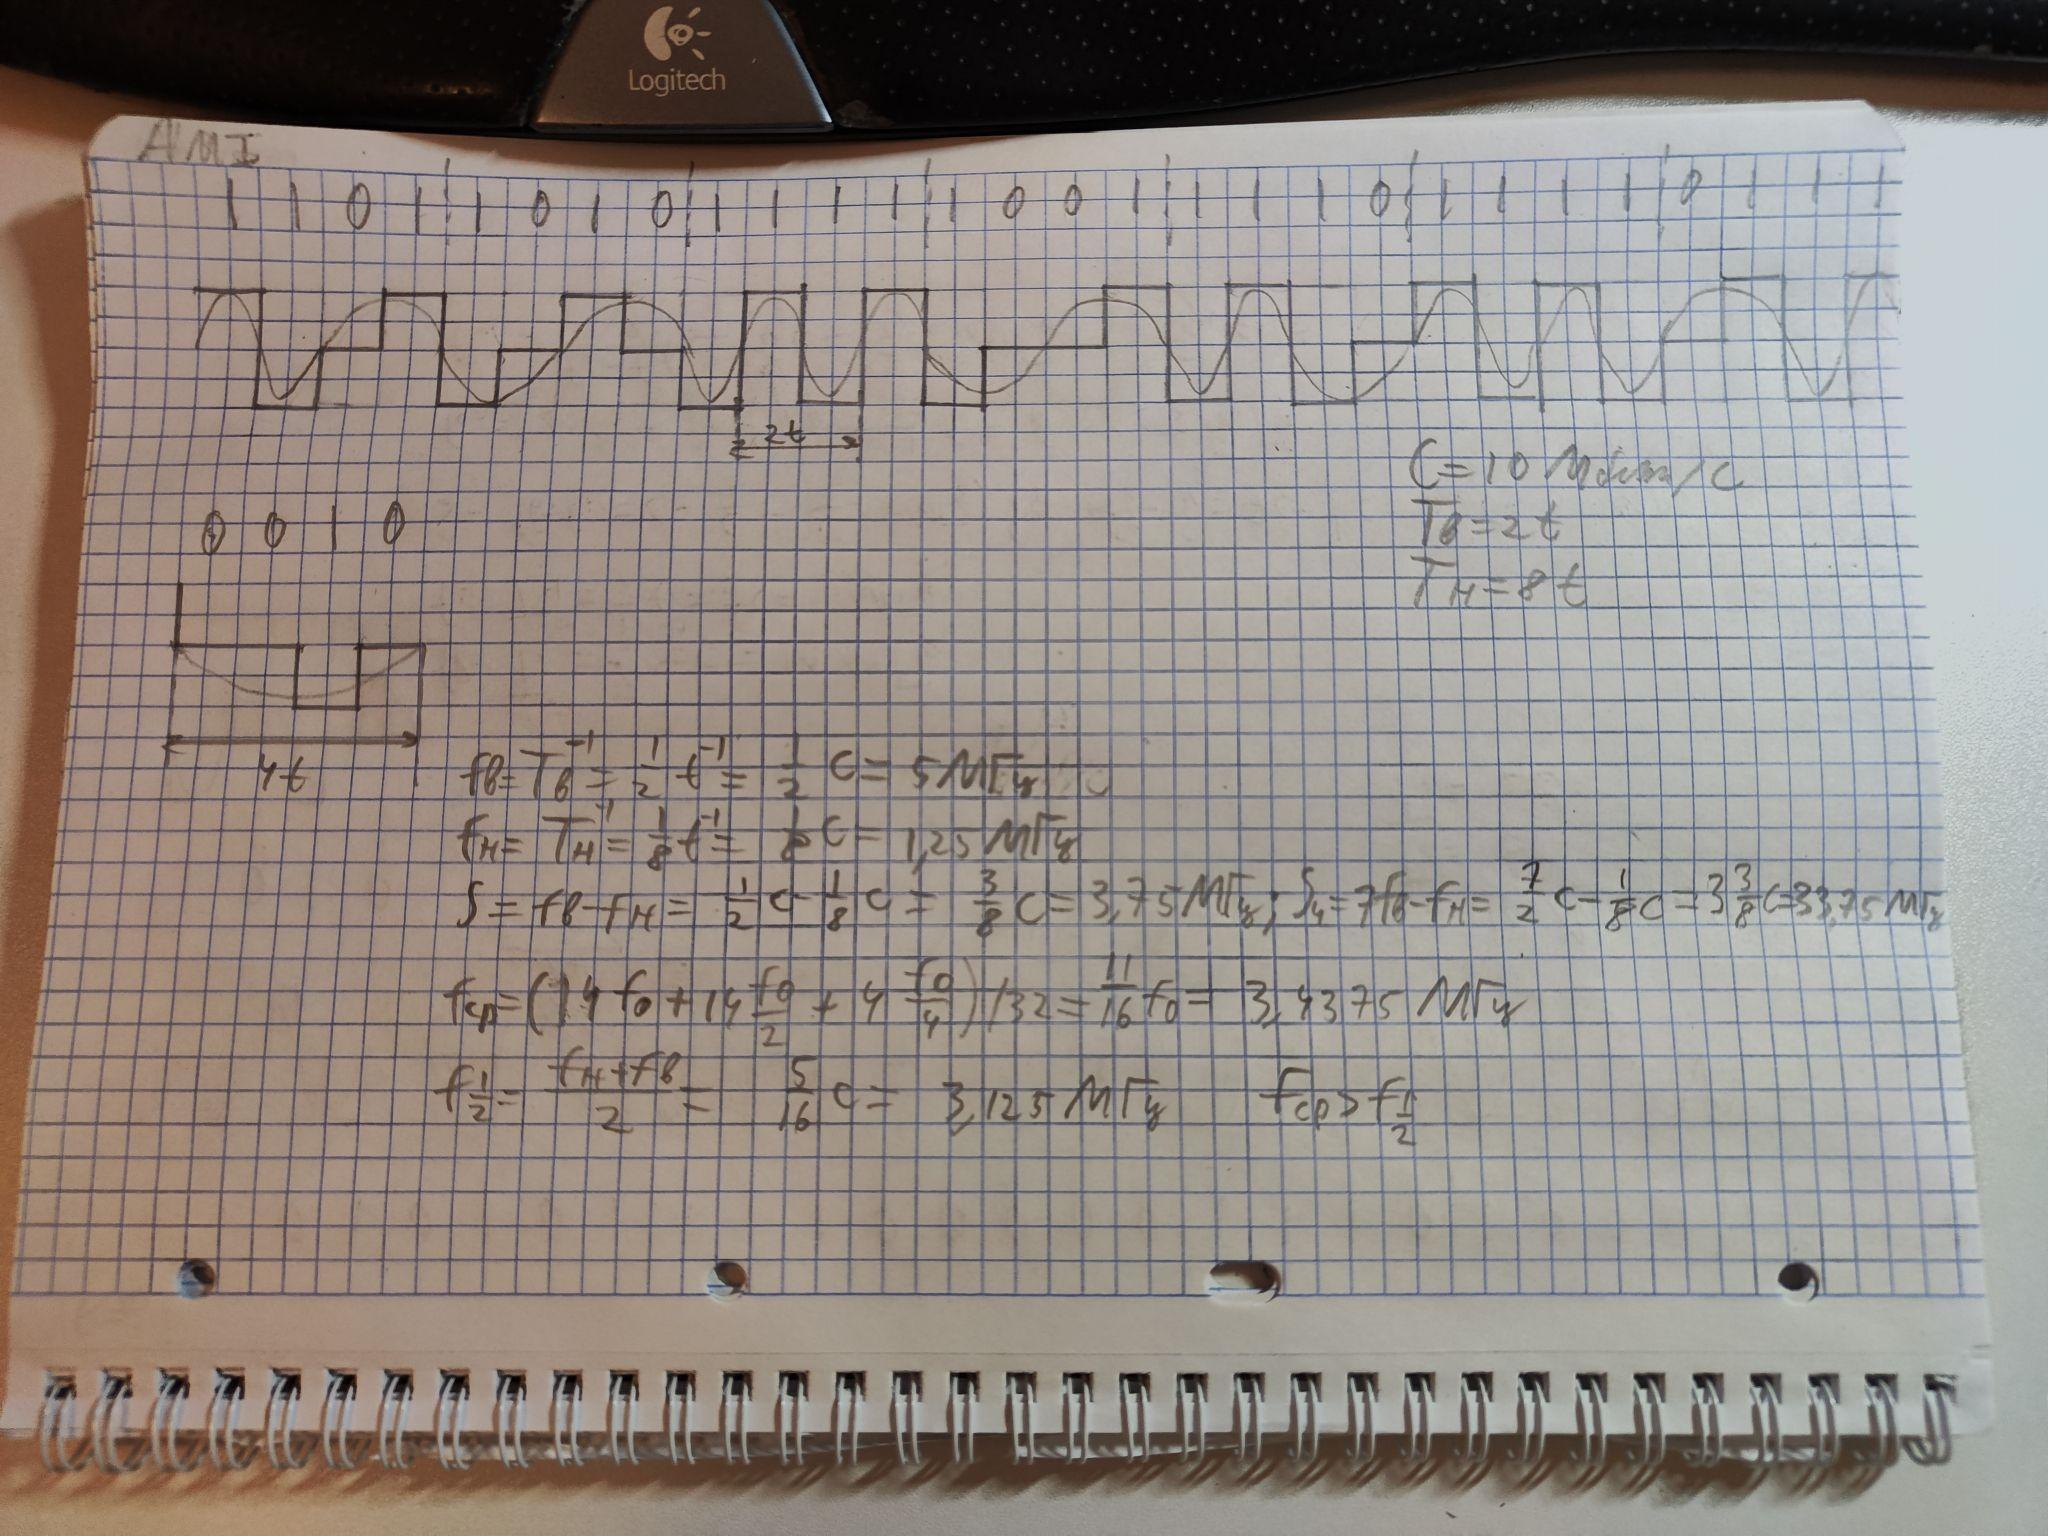 Logitech
AMI
1 1 0 1 1 0 1 0 1 1 1 1 1 0 0 1 1 1 1 0 1 1 1 1 0 1 1 1
2t
C = 10 Мбит/с
Тв = 2t
Тн = 8t
0 0 1 0
4t
fв = Тв⁻¹ = 1/2 t⁻¹ = 1/2 C = 5 МГц
fн = Тн⁻¹ = 1/8 t⁻¹ = 1/8 C = 1,25 МГц
S = fв - fн = 1/2 C - 1/8 C = 3/8 C = 3,75 МГц; S4 = 7fв - fн = 7/2 C - 1/8 C = 3 3/8 C = 33,75 МГц
fср = (14 f0 + 14 f0/2 + 4 f0/4) / 32 = 11/16 f0 = 3,4375 МГц
f1/2 = (fн + fв)/2 = 5/16 C = 3,125 МГц fср > f1/2